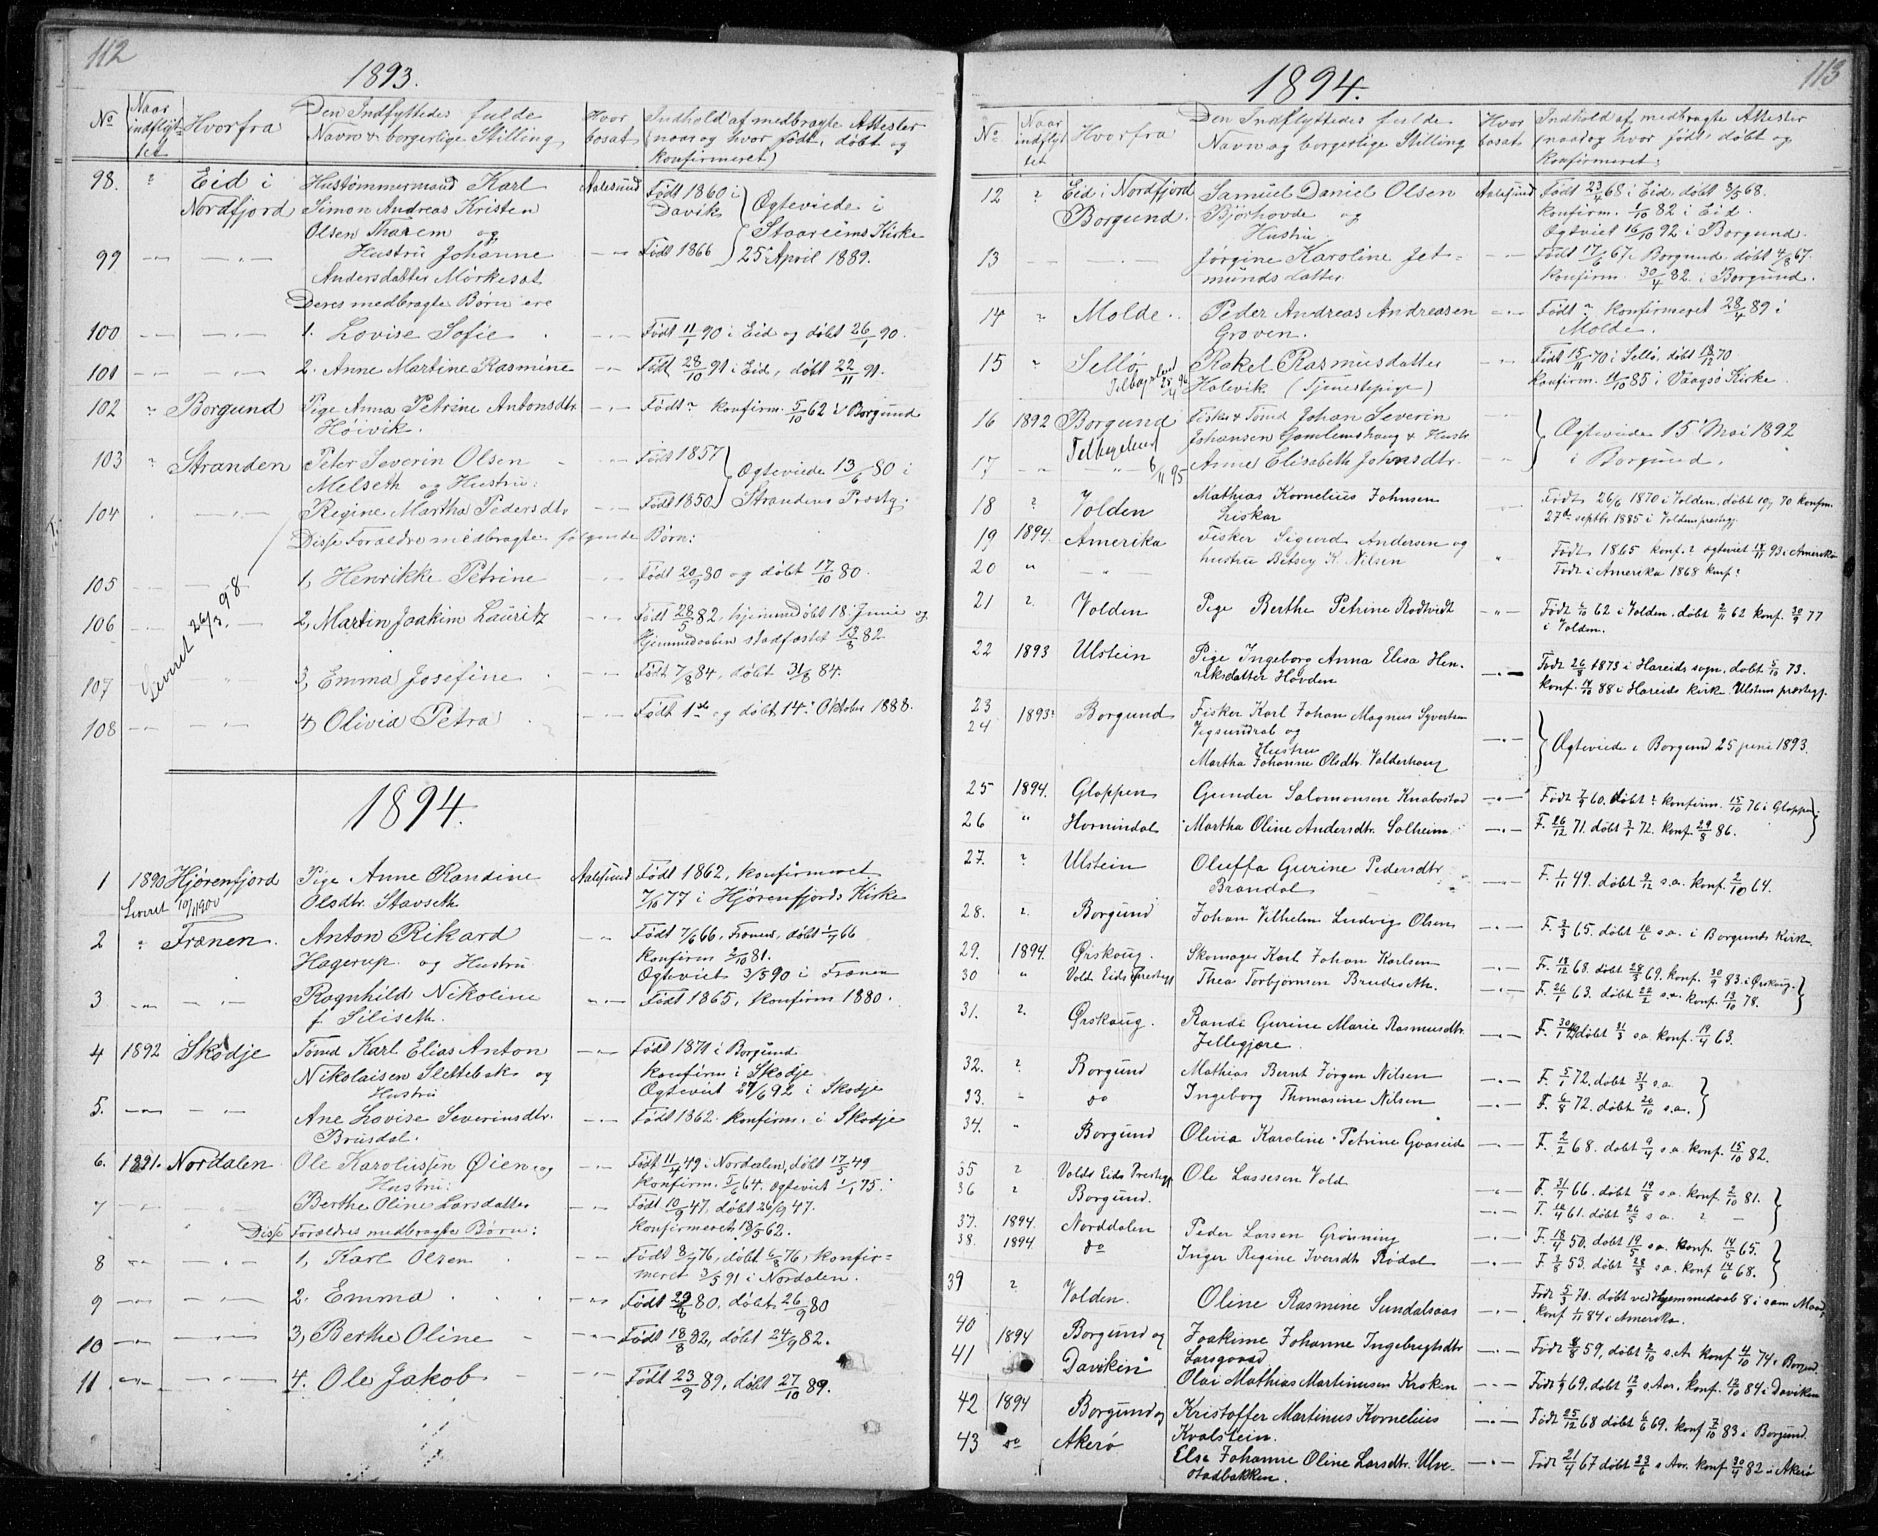 112
1893.
No | Naar indflyt- tet | Hvorfra | Den Indflyttedes fulde Navn & borgerlige Stilling | Hvor bosat | Indhold af medbragte Attester (naar og hvor født, døbt og konfirmeret)
98. ? Eid i Hustømmermand Karl Aalesund Født 1860 i
Nordfjord Simon Andreas Kristen Davik } Ægteviede i
Olsen Marem og Staareims Kirke
99 Hustru Johanne Født 1866 } 25 April 1889.
Andersdatter Mørkesat
Deres medbragte Børn ere
100 1. Lovise Sofie Født 11/1 90 i Eid og døbt 26/1 90.
101 2. Anne Martine Rasmine Født 28/10 91 i Eid, døbt 22/11 91.
102 ? Borgund Pige Anna Petrine Antonsdtr Født ? konfirm. 5/10 62 i Borgund
Høivik.
103 ? Stranden Peter Severin Olsen Født 1857 } Ægteviede 13/6 80 i
Melseth og Hustru:
104 Regine Martha Pedersdtr Født 1850 } Strandens Prstg.
Disse Forældre medbragte følgende Børn:
105 1, Henrikke Petrine Født 20/9 80 og døbt 17/10 80.
106 2, Martin Joakim Lauritz Født 28/5 82, hjemmedøbt 18. Junie og
Hjemmedaaben stadfæstet 13/8 82
Leveret 26/3 98.
107 3, Emma Josefine Født 7/8 84, døbt 31/8 84.
108 4, Olivia Petra Født 1ste og døbt 14. Oktober 1888.
1894.
1 1890 Hjørenfjord Pige Anne Randine Aalesund Født 1862, konfirmeret
Leveret 10/1 1900 Olsdtr. Stavseth 7/10 77 i Hjørenfjords Kirke
2 ? Frænen. Anton Rikard Født 7/6 66, Frænen, døbt 1/7 66
Hagerup. og Hustru konfirm 2/10 81.
Ægteviet 3/5 90 i Frænen
3. Ragnhild Nikoline Født 1865, konfirm 1880.
f. Siliseth.
4 1892 Skodje Tømd Karl Elias Anton Født 1871 i Borgund
Nikolaisen Slettebak og konfirm i Skodje
Hustru Ægteviet 27/6 92 i Skodje
5. Ane Lovise Severinsdtr. Født 1862. konfirm. i Skodje
Brusdal.
6. 1891. Nordalen Ole Karolussen Øien og Født 11/4 49 i Nordalen, døbt 17/5 49
Hustru: konfirm. 5/6 64. Ægteviet 1/1 75.
7 Berthe Oline Larsdatter Født 10/9 47, døbt 26/9 47.
Disse Forældres medbragte Børn: konfirmeret 13/5 62.
8 1, Karl Olsen Født 8/7 76, døbt 6/8 76, konfir-
meret 3/5 91 i Nordalen.
9 2. Emma Født 29/8 80, døbt 26/9 80
10 3, Berthe Oline Født 18/8 82, døbt 24/9 82.
11 4. Ole Jakob Født 23/9 89, døbt 27/10 89.
113
1894.
No. | Naar indflyt tet | Hvorfra | Den Indflyttedes fulde Navn og borgerlige Stilling | Hvor bosat | Indhold af medbragte Attester (naar og hvor født, døbt og konfirmeret.
12 ? Eid i Nordfjord Samuel Daniel Olsen Aalesund Født 23/4 68 i Eid. døbt 3/5 68.
Borgund. Bjørhovde og konfirm. 1/10 82 i Eid.
Hustru Ægteviet 16/10 92 i Borgund.
13 Jørgine Karoline Jet- Født 17/6 67 i Borgund. døbt 4/8 67.
mundsdatter. konfirm. 30/4 82. i Borgund.
14 ? Molde. Peder Andreas Andreasen Født ? konfirmeret 28/4 89 i
Groven. Molde.
15 ? Sellø Rakel Rasmusdatter Født 15/11 70 i Sellø. døbt 18/12 70
Tilbageleveret 25/4 96 Halevik (Tjenestepige) konfirm. 11/10 85 i Vaagsø Kirke.
16 1892 Borgund Fisker & Tømd Johan Severin
Tilbagelev. Johansen Gamlemshaug & Hustr } Ægteviede 15 Mai 1892
17 6/11 95 Anne Elisabeth Johnsdtr. } i Borgund.
18 ? Volden Mathias Kornelius Johnsen Født 26/6 1870 i Volden. døbt 10/7 70 konfirm.
Liskar 27de septbr 1885 i Voldens prestegj.
19 1894. Amerika Fisker Sigurd Andersen og Født 1865 konf. ? ægteviet 18/11 93 i Amerika
20 " hustru Betsey K. Nilsen Født i Amerika 1868 konf ?
21 ? Volden Pige Berthe Petrine Rodtvedt Født 5/10 62 i Volden. døbt 2/11 62 konf. 30/9 77
i Volden.
22 1893 Ulstein Pige Ingeborg Anna Elisa Hen- Født 26/8 1873 i Hareids sogn. døbt 5/10 73.
riksdatter Hovden konf. 14/10 88 i Hareids kirk Ulstens prestegj.
23
24 1893 ? Borgund Fisker Karl Johan Magnus Syvertsen
Vegsundrab og } Ægteviede i Borgund 25 juni 1893.
Hustru
Martha Johanne Olsdtr. Valderhaug
25 1894. Gloppen Gunder Salomonsen Knabostad Født 7/9 60. døbt ? konfirm. 15/10 76 i Gloppen
26 " Hornindal Martha Oline Andersdtr. Solheim F. 26/12 71. døbt 3/1 72. konf. 29/8 86.
27. ? Ulstein Oluffa Gurine Pedersdtr F. 1/11 49. døbt 9/12 s.a. konf. 2/10 64.
Brandal
28. ? Borgund Johan Vilhelm Ludvig Olsen F. 3/3 65. døbt 10/6 s.a. i Borgunds Kirk.
29. 1894. Ørskoug. Skomager Karl Johan Karlsen F. 18/12 68. døbt 28/3 69. konf. 30/9 83. i Ørskoug.
30 " Vold. Eids Prestegj Thea Torbjørnsen Brudeseth. F. 26/1 63. døbt 22/2 s.a. konf. 13/10 78.
31. ? Ørskoug. Randi Gurine Marie Rasmusdtr. F. 30/1 døbt 31/3 s.a. konf. 19/4 63.
Jellegjære.
32. ? Borgund Mathias Bernt Jørgen Nilsen F. 5/1 72. døbt 31/3 s.a.
33. do Ingeborg Thomasine Nilsen F. 6/8 72. døbt 20/10 s.a.
34. " Borgund Olivia Karoline Petrine Gvaseide F. 2/2 68. døbt 9/4 s.a. konf. 15/10 82.
35 ? Volds Eids Prestegj Ole Lassesen Vold F. 31/7 66. døbt 19/8 s.a. konf. 2/10 81.
36 ? Borgund. F. 10/4 61. døbt 26/5 s.a. ? —
37. 1894. Norddalen Peder Larsen Grønning F. 18/4 50. døbt 19/5 s.a. konf. 14/5 65.
38. 1894. do Inger Regine Iversdtr Rødal F. 3/8 53. døbt 28/8 s.a. konf. 14/6 68.
39 ? Volden. Oline Rasmine Sundalsaas Født 5/3 70. døbt ved Hjemmedaab 8 i sam Maaned
konf 1/11 84 i Amerika.
40 1894 Borgund og Joakime Johanne Ingebregtsdtr Født 8/8 59, døbt 2/10 s.A. konf 4/10 74 i Borgund
Larsgaard
41 Daviken Olai Mathias Martinusen Kroken Født 1/9 69, døbt 12/9 s. Aar. konf. 12/10 84 i Daviken
42 1894 Borgund og Kristoffer Martinus Kornelius Født 25/12 68 døbt 6/6 69. konf 7/10 83 i Borgund
Kvalstein.
43 do Akerø Else Johanne Oline Larsdtr. Ulve- Født 21/4 67 døbt 23/6 s. Aar. konf 30/4 82 i Akerø
stadbakken.